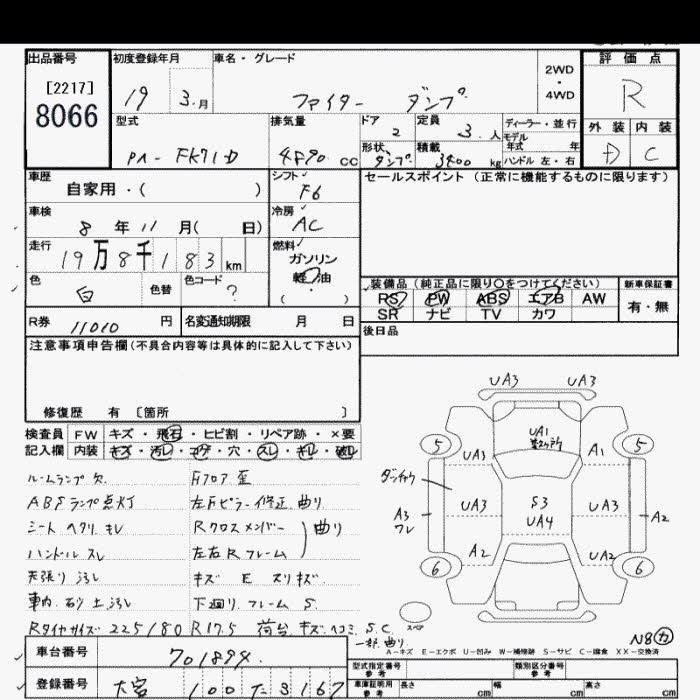 出品番号
[2217]
8066
初度登録年月
19 3.月
車名・グレード
ファイター ダンプ
2WD
・
4WD
評価点
R
外装 内装
D C
型式
PA-FK71D
排気量
4F90 CC
ドア
2
定員
3.人
ディーラー・並行
モデル
年式 年
形状
ダンプ
積載
3800 kg
ハンドル 左・右
車歴
自家用・( )
シフト
F6
セールスポイント (正常に機能するものに限ります)
車検
8年11月( 日)
冷房
AC
走行
19万8千183km
燃料
ガソリン
軽油
( ・ )
色
白
色替
色コード
?
装備品 (純正品に限り○をつけてください)
新車保証書
PS PW ABS エアB AW
有・無
SR ナビ TV カワ
R券 11010 円
名変通知期限 月 日
後日品
注意事項申告欄(不具合内容等は具体的に記入して下さい)
修復歴 有 〔箇所 〕
検査員 FW キズ・飛石・ヒビ割・リペア跡・×要
記入欄 内装 キズ・汚レ・コゲ・穴・スレ・キレ・破レ
ルームランプ欠
ABSランプ点灯
シート ヘタリ キレ
ハンドル スレ
天張り 汚レ
車内 砂 土 汚レ
Rタイヤサイズ 225/80 R17.5
Fフロア 歪
左Fピラー修正 曲り
Rクロスメンバー
左右Rフレーム
曲り
キズ E スリキズ
下廻り フレーム S
荷台 キズ ヘコミ S.C
一部 曲り
UA3 UA3
UA1
5 5
UA3 A1
ダンチョウ
UA3
S3
UA4
UA3
A3
ワレ
A2
A2 UA2
6 6
スペア
N8カ
A-キズ E-エクボ U-凹み W-補修跡 S-サビ C-腐食 XX-交換済
車台番号
701894
登録番号
大宮 100 た 3167
型式指定番号
参考
類別区分番号
参考
車庫証明用
参考
長さ cm 幅 cm 高さ cm